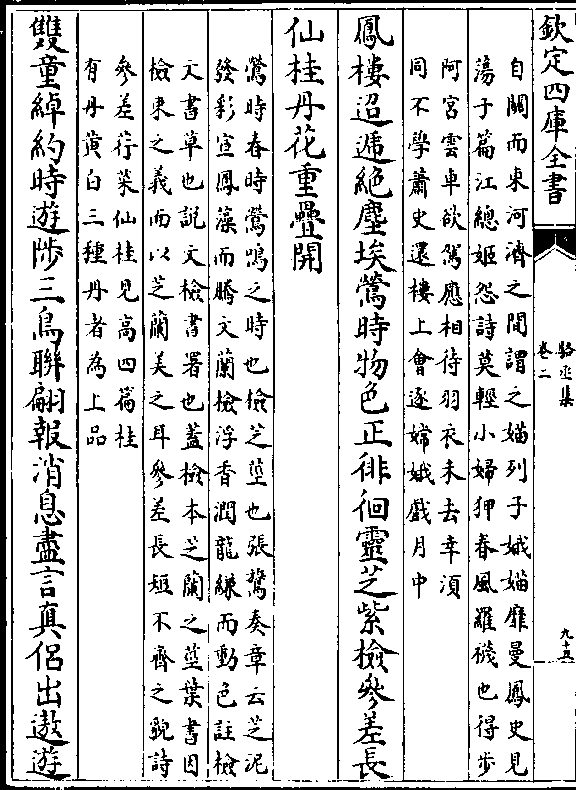 欽定四庫全書
駱丞集
卷二
九十五
自關而東河濟之間謂之媌列子娥媌靡曼鳳史見
蕩子篇江總姬怨詩莫輕小婦狎春風羅襪也得步
阿宮雲車欲駕應相待羽衣未去幸須
同不學蕭史還樓上會逐嫦娥戲月中
鳳樓迢遞絶塵埃鶯時物色正徘徊靈芝紫檢參差長
仙桂丹花重疊開
鶯時春時鶯鳴之時也檢芝莖也張鷟奏章云芝泥
發彩宣鳳藻而騰文蘭檢浮香潤龍縑而動色註檢
文書草也説文檢書署也蓋檢本芝蘭之莖葉書因
檢束之義而以芝蘭美之耳參差長短不齊之貌詩
參差荇菜仙桂見髙四篇桂
有丹黄白三種丹者為上品
雙童綽約時遊陟三鳥聯翩報消息盡言真侣出遨遊